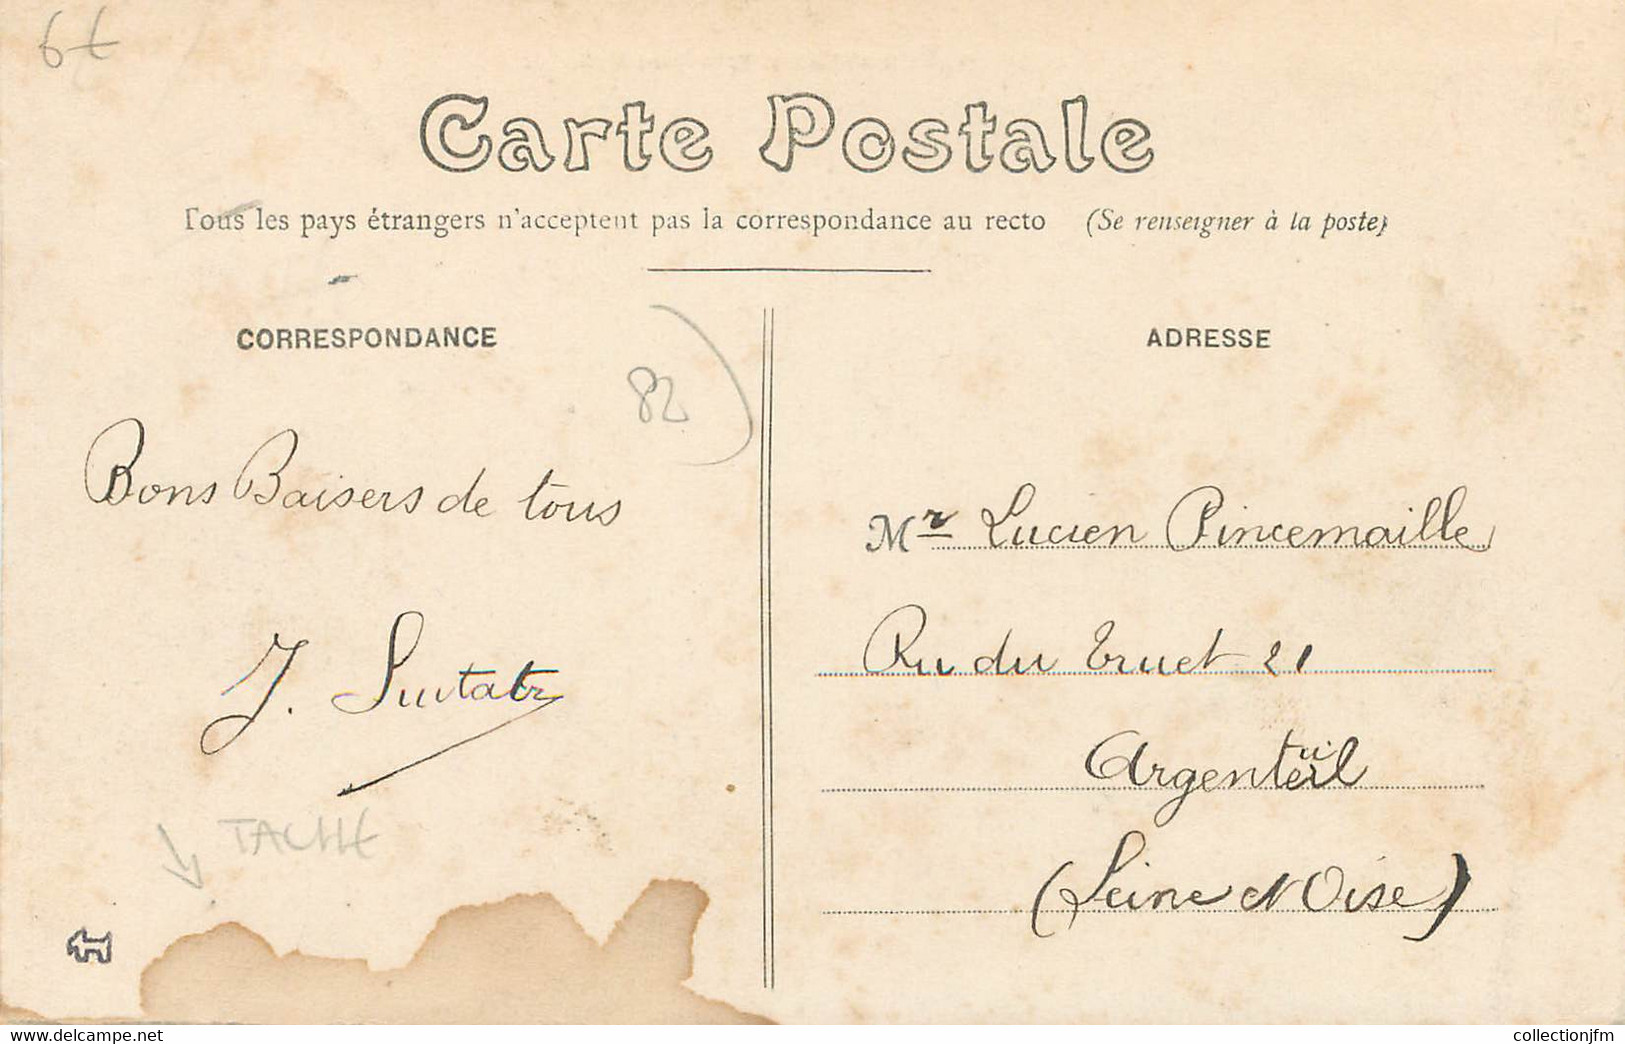 6€
Carte Postale
Tous les pays étrangers n'acceptent pas la correspondance au recto (Se renseigner à la poste)
CORRESPONDANCE
82
Bons Baisers de tous
J.
TACHE
ADRESSE
Mr Lucien Pincemaille
Ru du Truet 21
Argenteuil
(Seine et Oise)
www.delcampe.net
collectionjfm